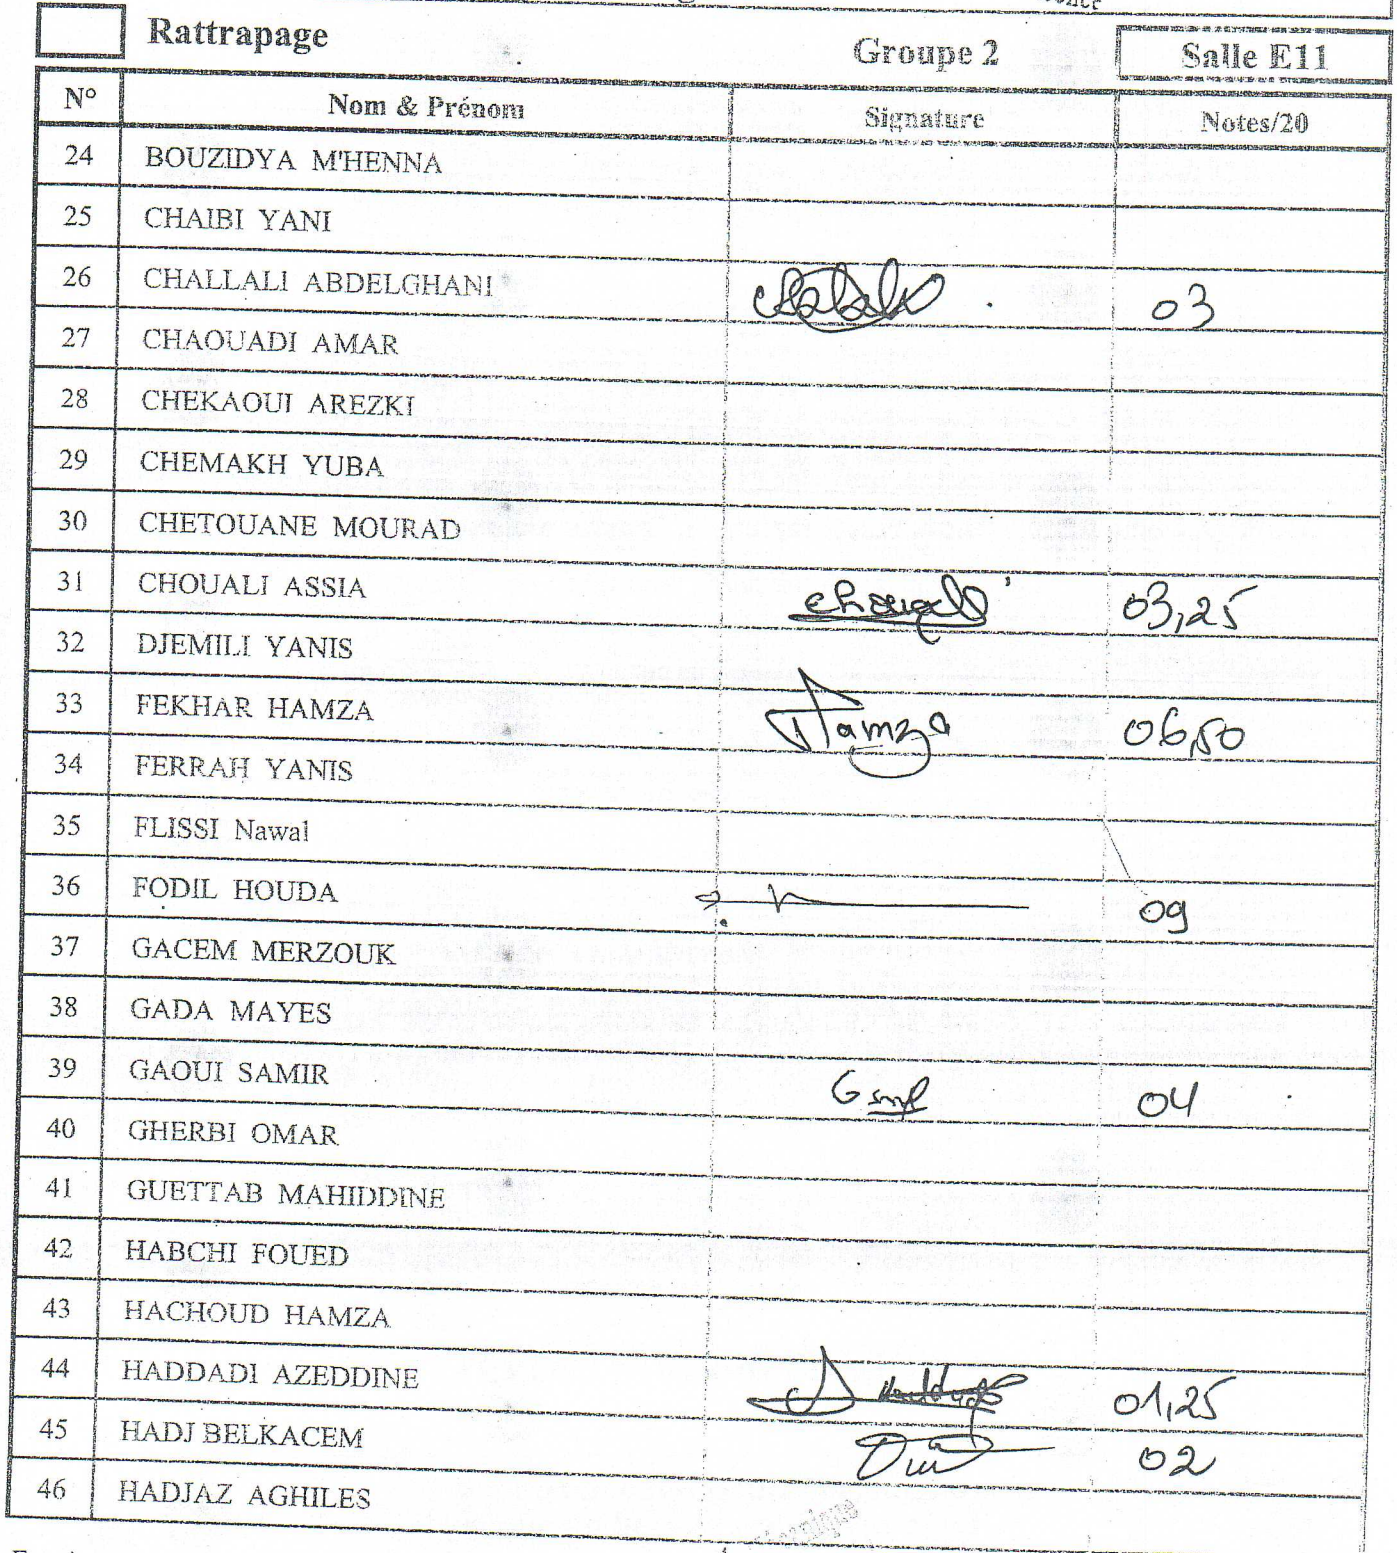 Rattrapage Groupe 2 Salle E11
N° Nom & Prénom Signature Notes/20
24 BOUZIDYA M'HENNA
25 CHAIBI YANI
26 CHALLALI ABDELGHANI 03
27 CHAOUADI AMAR
28 CHEKAOUI AREZKI
29 CHEMAKH YUBA
30 CHETOUANE MOURAD
31 CHOUALI ASSIA 03,25
32 DJEMILI YANIS
33 FEKHAR HAMZA Hamza 06,50
34 FERRAH YANIS
35 FLISSI Nawal
36 FODIL HOUDA 09
37 GACEM MERZOUK
38 GADA MAYES
39 GAOUI SAMIR 04
40 GHERBI OMAR
41 GUETTAB MAHIDDINE
42 HABCHI FOUED
43 HACHOUD HAMZA
44 HADDADI AZEDDINE 01,25
45 HADJ BELKACEM 02
46 HADJAZ AGHILES